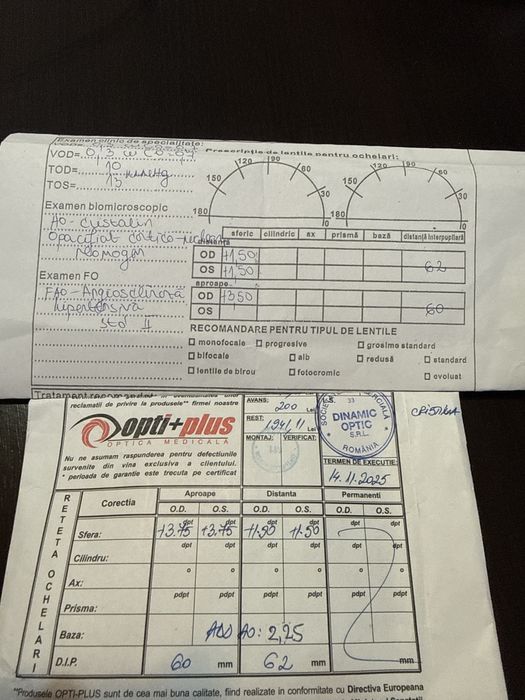 Examen clinic de specialitate:
VOD= 0,3
TOD= 10
mmHg
TOS= 13
Prescriptie de lentile pentru ochelari:
120 90 60 120 90 60
150 30 150 30
180 0 180 0
Examen biomicroscopic
AO - cristalin
opacifiat
neomogen
sferic cilindric ax prismă bază distanță interpupilară
distanță
OD +1,50
OS +1,50 62
aproape
OD +3,50
OS 60
Examen FO
FAO - Angioscleroză
hipertensivă
std II
RECOMANDARE PENTRU TIPUL DE LENTILE
monofocale progresive grosime standard
bifocale alb redusă standard
lentile de birou fotocromic evoluat
reclamatii de privire la produsele** firmei noastre
opti+plus
OPTICA MEDICALĂ
Nu ne asumam raspunderea pentru defectiunile
survenite din vina exclusiva a clientului.
* perioada de garantie este trecuta pe certificat
AVANS: 200 Lei
REST: 1.941,11 Lei
MONTAJ: VERIFICAT:
DINAMIC
OPTIC
S.R.L.
ROMÂNIA
TERMEN DE EXECUTIE:
14.11.2025
RETETA OCHELARI
Corectia Aproape Distanta Permanenti
O.D. O.S. O.D. O.S. O.D. O.S.
Sfera: +3.75 dpt +3.75 dpt +1,50 dpt +1,50 dpt dpt dpt
Cilindru: dpt dpt dpt dpt dpt dpt
Ax: o o o o o o
Prisma: pdpt pdpt pdpt pdpt pdpt pdpt
Baza: ADD AO: 2,25
D.I.P. 60 mm 62 mm mm
**Produsele OPTI-PLUS sunt de cea mai buna calitate, fiind realizate in conformitate cu Directiva Europeana